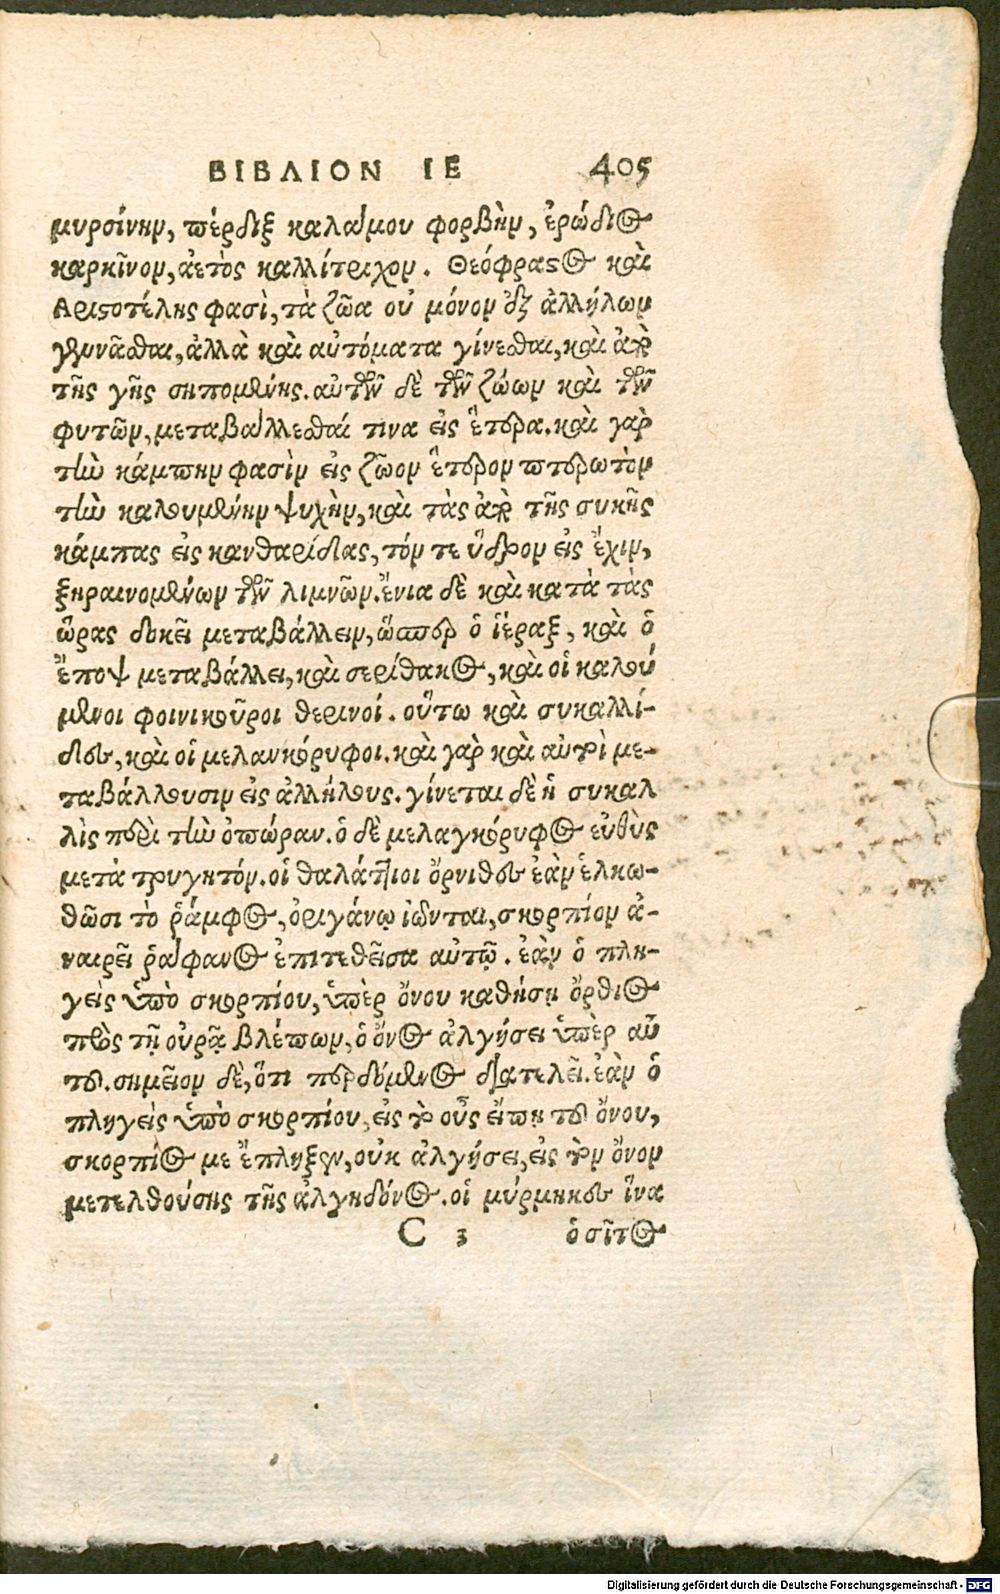 ΒΙΒΛΙΟΝ ΙΕ 405
μυρσίνην, πέρδιξ καλάμου φορβὴν, ἐρώδιος
καρκῖνον, ἀετὸς καλλίτριχον. Θεόφραστος καὶ
Ἀριστοτέλης φασὶ, τὰ ζῶα οὐ μόνον ἐξ ἀλλήλων
γεννᾶσθαι, ἀλλὰ καὶ αὐτόματα γίνεσθαι, καὶ ἀπὸ
τῆς γῆς σηπομένης. αὐτῶν δὲ τῶν ζώων καὶ τῶν
φυτῶν, μεταβάλλεσθαί τινα εἰς ἕτερα. καὶ γὰρ
τὴν κάμπην φασὶν εἰς ζῶον ἕτερον πτερωτὸν
τὴν καλουμένην ψυχὴν, καὶ τὰς ἀπὸ τῆς συκῆς
κάμπας εἰς κανθαρίδας, τόν τε ὕδρον εἰς ἔχιν,
ξηραινομένων τῶν λιμνῶν. ἔνια δὲ καὶ κατὰ τὰς
ὥρας δοκεῖ μεταβάλλειν, ὥσπερ ὁ ἱέραξ, καὶ ὁ
ἔποψ μεταβάλλει, καὶ σερίθακος, καὶ οἱ καλού
μενοι φοινικοῦροι θερινοί. οὕτω καὶ συκαλλί-
δες, καὶ οἱ μελανκόρυφοι. καὶ γὰρ καὶ αὐτοὶ με-
ταβάλλουσιν εἰς ἀλλήλους. γίνεται δὲ ἡ συκαλ
λὶς περὶ τὴν ὀπώραν. ὁ δὲ μελαγκόρυφος εὐθὺς
μετὰ τρυγητόν. οἱ θαλάττιοι ὄρνιθες ἐὰν ἑλκω-
θῶσι τὸ ῥάμφος, ὀριγάνῳ ἰῶνται, σκορπίον ἀ-
ναιρεῖ ῥάφανος ἐπιτεθεῖσα αὐτῷ. ἐὰν ὁ πλη-
γεὶς ὑπὸ σκορπίου, ὑπὲρ ὄνου καθήσῃ ὄρθιος
πρὸς τῇ οὐρᾷ βλέπων, ὁ ὄνος ἀλγήσει ὑπὲρ αὐ
τοῦ. σημεῖον δὲ, ὅτι περδόμενος διατελεῖ. ἐὰν ὁ
πληγεὶς ὑπὸ σκορπίου, εἰς τὸ οὖς εἴπῃ τοῦ ὄνου,
σκορπίος με ἔπληξεν, οὐκ ἀλγήσει, εἰς τὸν ὄνον
μετελθούσης τῆς ἀλγηδόνος. οἱ μύρμηκες ἵνα
C 3 ὁ σῖτος
Digitalisierung gefördert durch die Deutsche Forschungsgemeinschaft - DFG